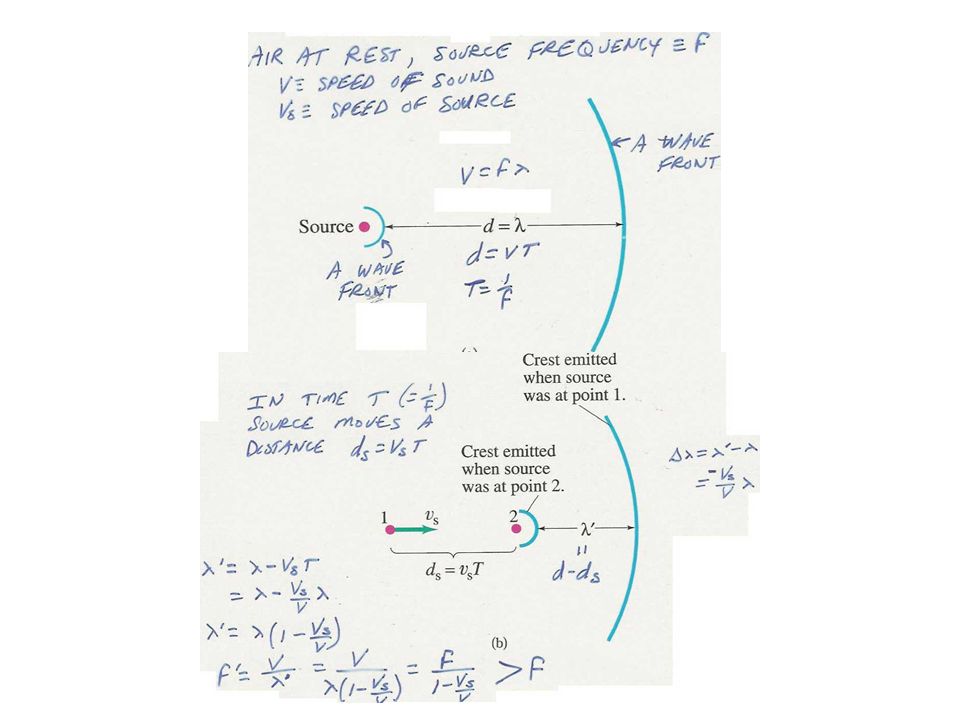 AIR AT REST, SOURCE FREQUENCY ≡ F
V ≡ SPEED OF SOUND
Vs ≡ SPEED OF SOURCE
A WAVE
FRONT
V = F λ
Source
d = λ
d = VT
T = 1/F
A WAVE
FRONT
Crest emitted
when source
was at point 1.
IN TIME T (= 1/F)
SOURCE MOVES A
DISTANCE ds = Vs T
Crest emitted
when source
was at point 2.
Δλ = λ' - λ
= - Vs/V λ
1 vs 2 λ'
ds = vsT
"
d-ds
λ' = λ - Vs T
= λ - Vs/V λ
λ' = λ (1 - Vs/V)
(b)
F' = V/λ' = V/λ(1 - Vs/V) = F/1 - Vs/V > F